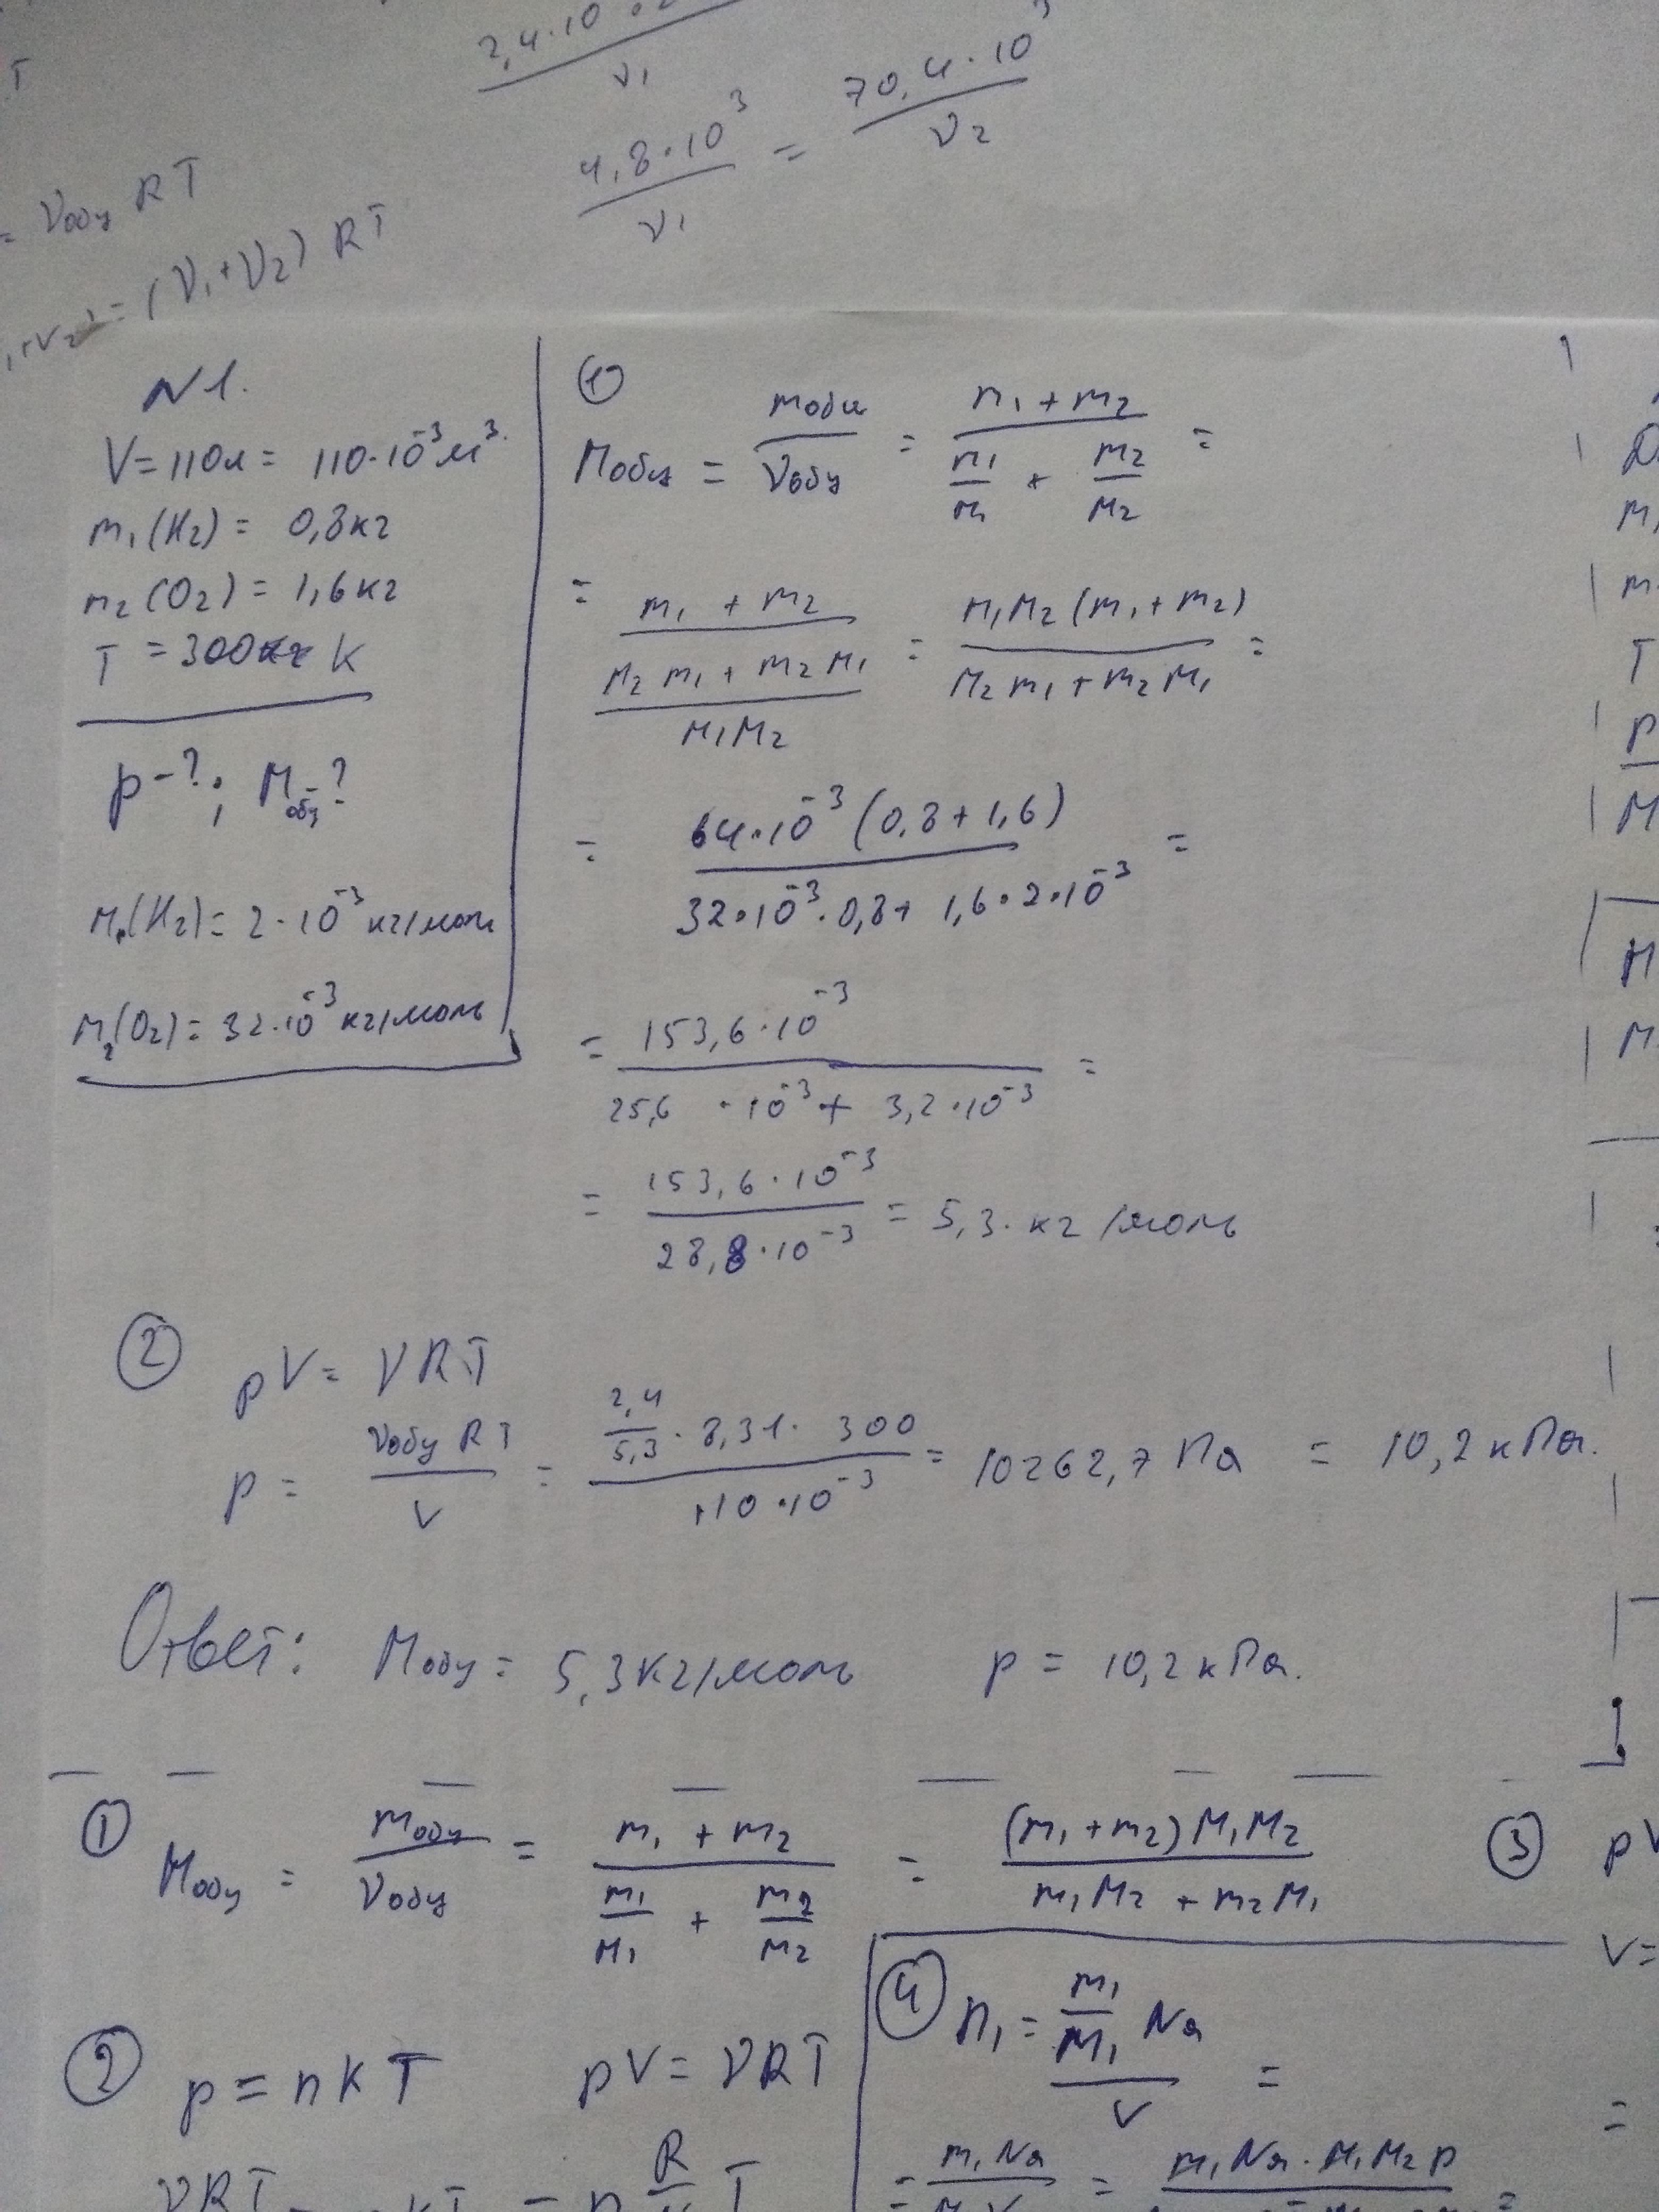 T
2,4·10
ν₁
4,8·10³ / ν₁ = 70,4·10³ / ν₂
= νобщ RT
= (ν₁+ν₂) RT
N1.
V = 110л = 110·10⁻³ м³.
m₁(H₂) = 0,8кг
m₂(O₂) = 1,6кг
T = 300 K
p - ?; Mобщ - ?
M₁(H₂) = 2·10⁻³ кг/моль
M₂(O₂) = 32·10⁻³ кг/моль
①
Mобщ = mобщ / νобщ = (m₁ + m₂) / (m₁/M₁ + m₂/M₂) =
= (m₁ + m₂) / ((M₂m₁ + m₂M₁) / M₁M₂) = M₁M₂(m₁+m₂) / (M₂m₁ + m₂M₁) =
= 64·10⁻³(0,8+1,6) / (32·10⁻³·0,8 + 1,6·2·10⁻³) =
= 153,6·10⁻³ / (25,6·10⁻³ + 3,2·10⁻³) =
= 153,6·10⁻³ / 28,8·10⁻³ = 5,3·кг/моль
② pV = νRT
p = νобщ RT / V = (2,4/5,3 · 8,31 · 300) / (110·10⁻³) = 10262,7 Па = 10,2 кПа.
Ответ: Mобщ = 5,3кг/моль p = 10,2 кПа.
① Mобщ = mобщ / νобщ = (m₁ + m₂) / (m₁/M₁ + m₂/M₂) = (m₁+m₂)M₁M₂ / (m₁M₂ + m₂M₁)
③ pV
V=
② p = nkT pV = νRT
④ n₁ = (m₁/M₁ Nа) / V =
= m₁Nа = m₁Nа·M₁M₂p
νRT